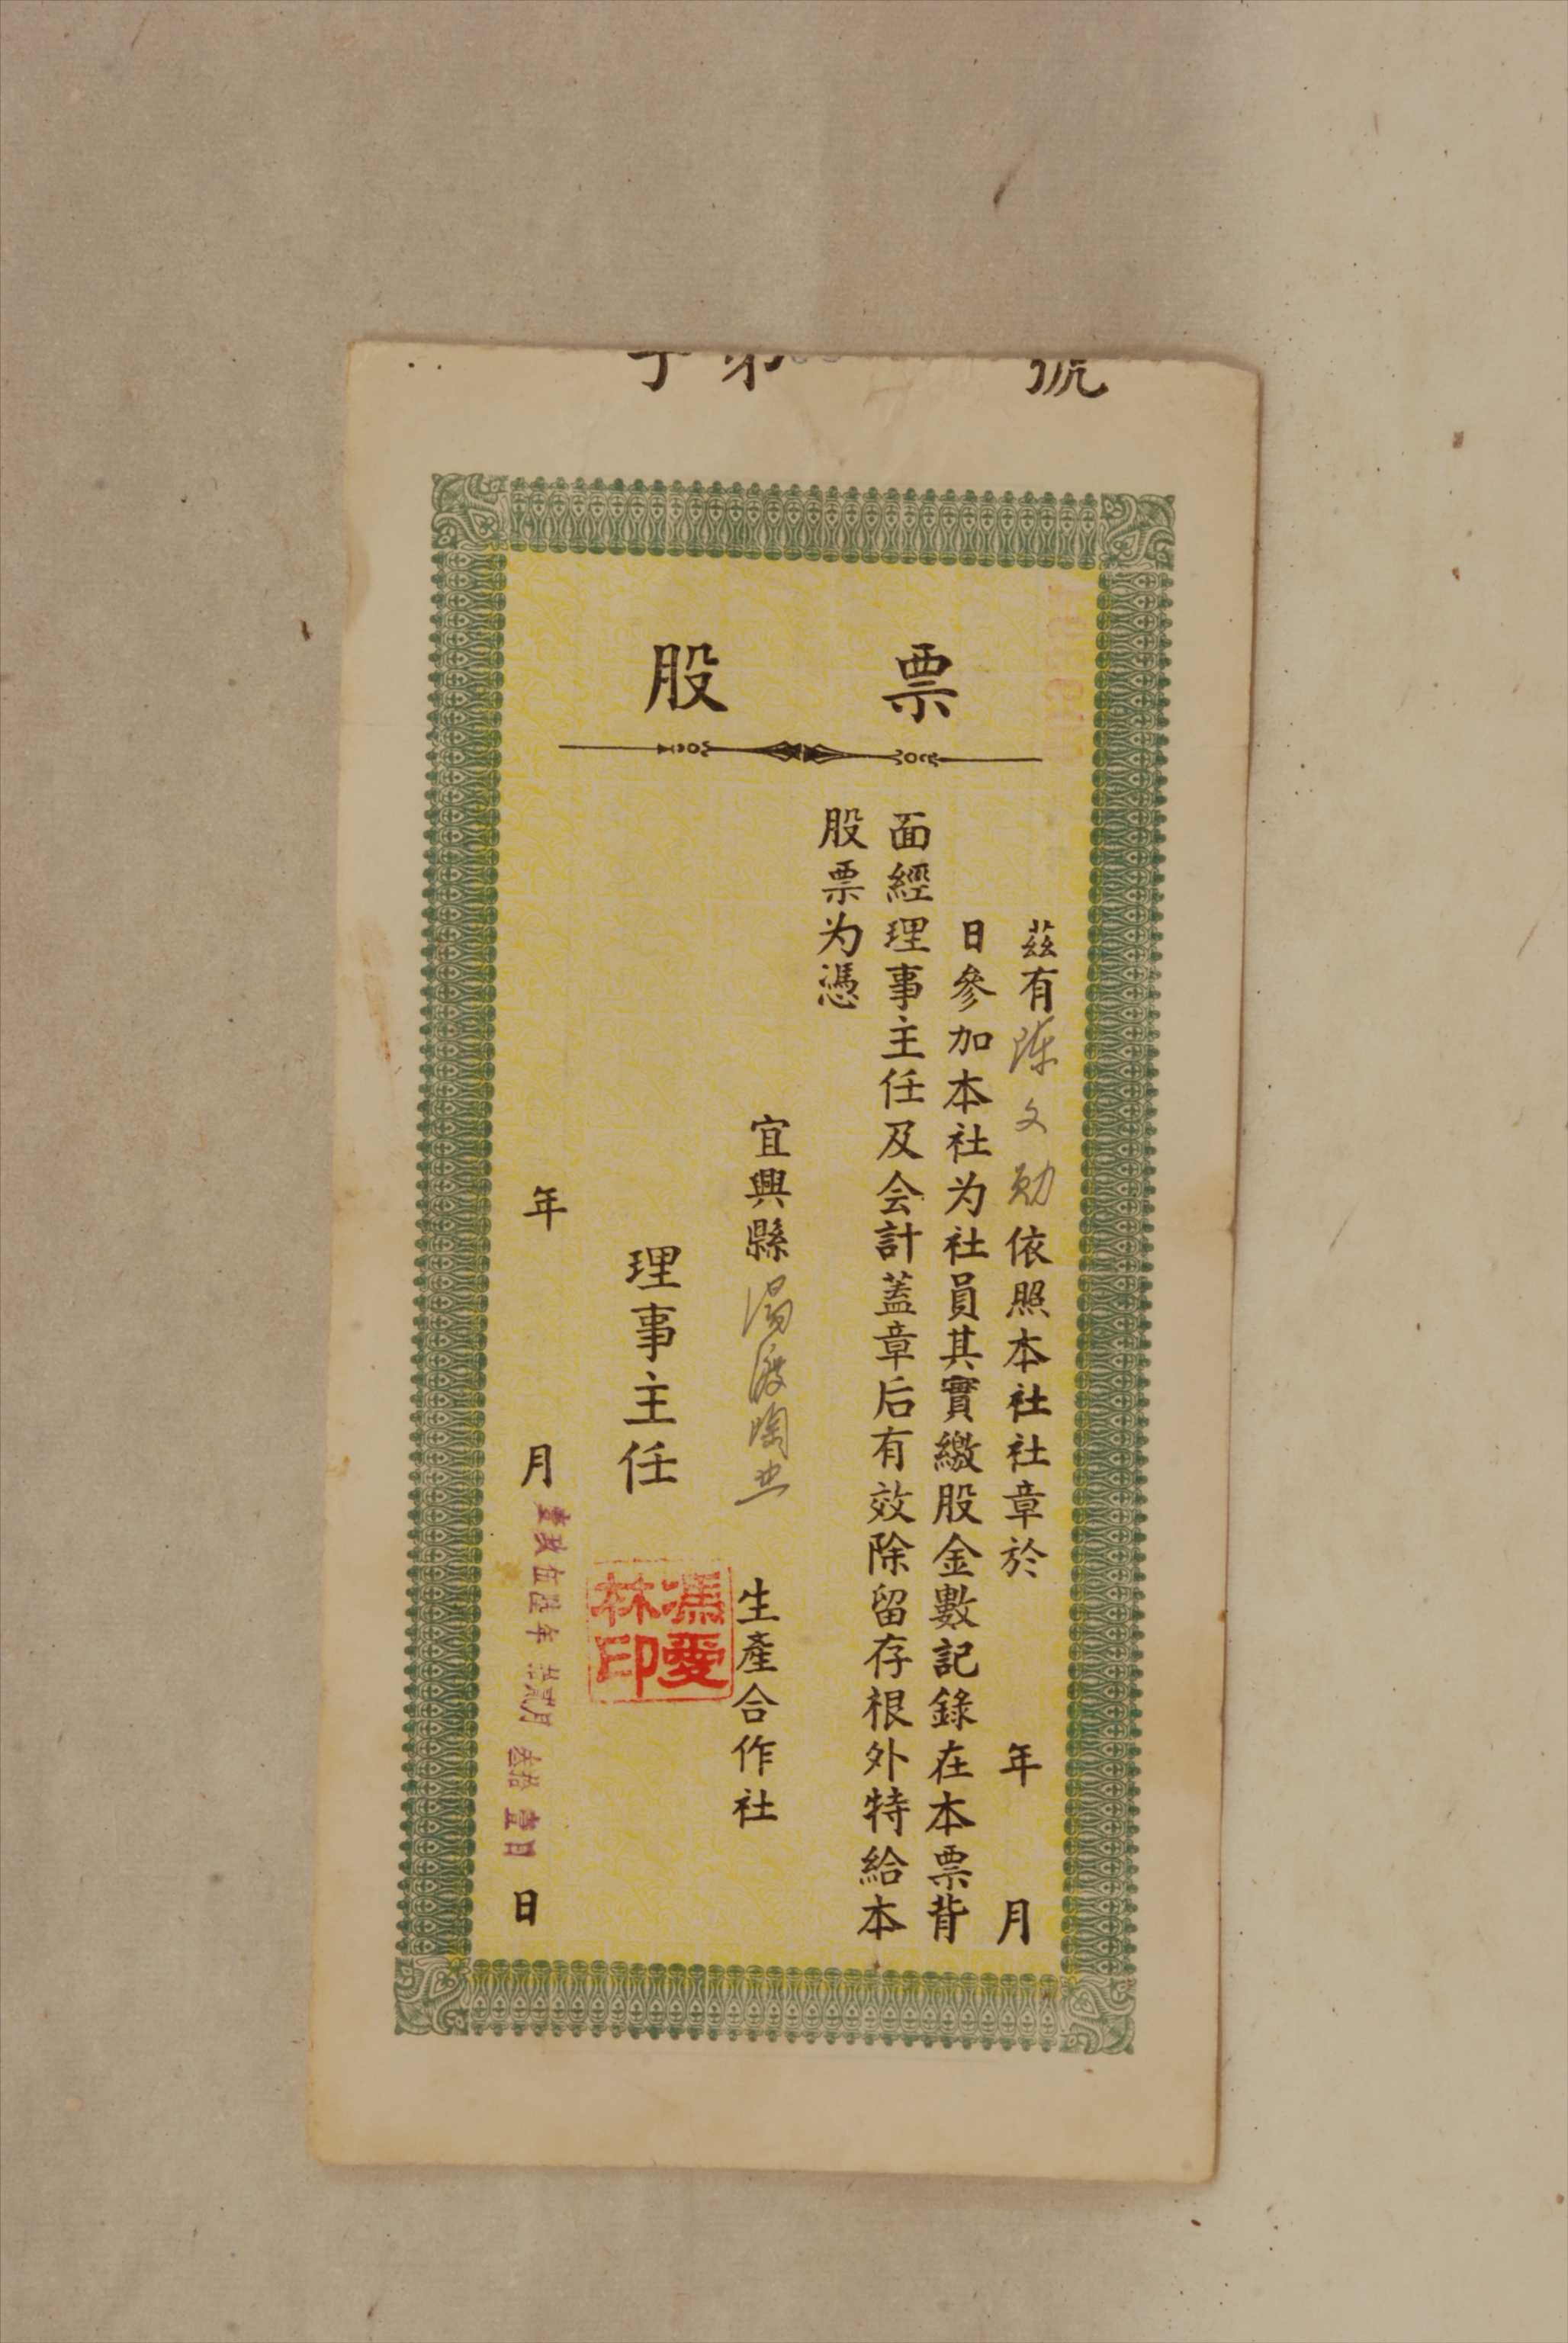 字第 號
股票
茲有陈文勋依照本社社章於 年 月
日參加本社为社員其實繳股金數記錄在本票背
面經理事主任及会計蓋章后有效除留存根外特給本
股票为憑
宜興縣湯渡陶业生產合作社
理事主任
馮愛林印
年 月 日
壹玖伍陆年拾贰月叁拾壹日